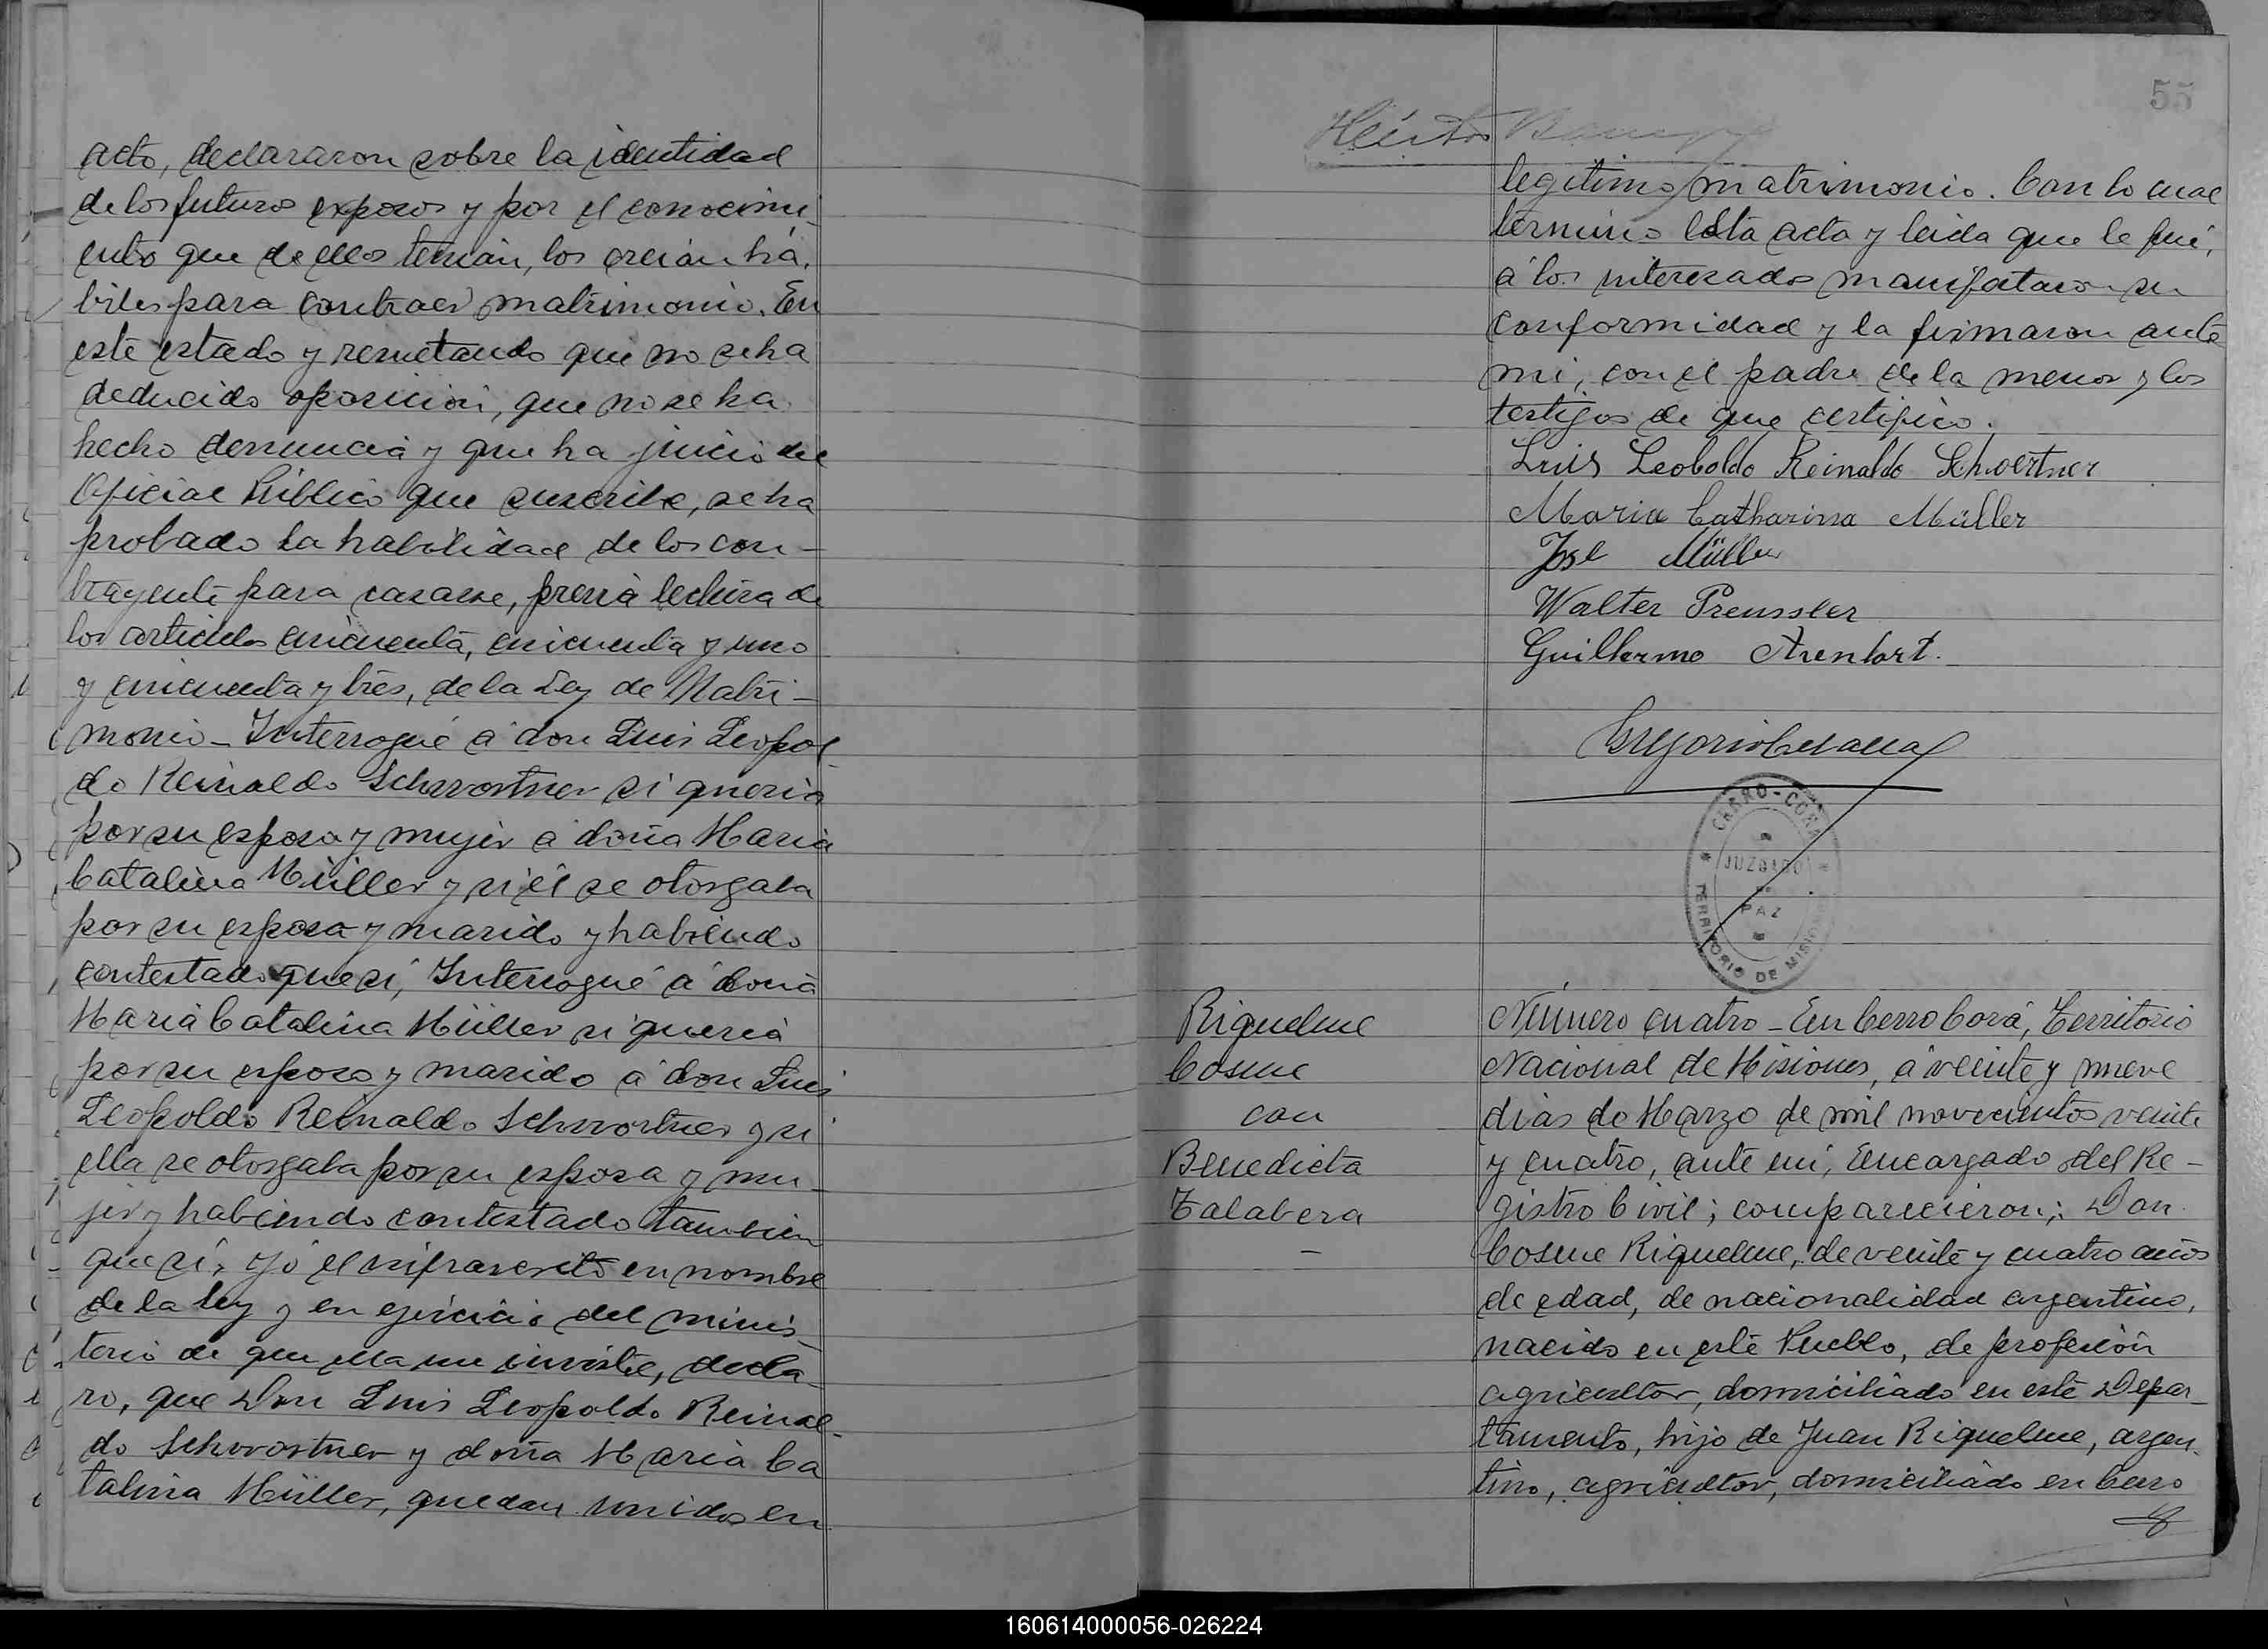 acto, declararon sobre la identidad
de los futuros esposos y por el conocimi-
ento que de ellos tenian, los creian há-
biles para contraer matrimonio. En
este estado y resultando que no se ha
deducido oposicion, que no se ha
hecho denuncia y que ha juicio del
Oficial Público que suscribe, se ha
probado la habilidad de los con-
trayente para casarse, previa lectura de
los articulos cincuenta, cincuenta y uno
y cincuenta y tres, de la Ley de Matri-
monio - Interrogué á don Luis Leopol-
do Reinaldo Schwortner si queria
por su esposa y mujer á doña Maria
Catalina Müller y si él se otorgaba
por su esposo y marido y habiendo
contestado que si, Interrogué á doña
Maria Catalina Müller si queria
por su esposo y marido á don Luis
Leopoldo Reinaldo Schwortner y si
ella se otorgaba por su esposa y mu-
jer y habiendo contestado tambien
que si, Yo el infrascrito en nombre
de la ley y en ejercicio del minis-
terio de que ella me inviste, decla-
ro, que Don Luis Leopoldo Reinal-
do Schwortner y doña Maria Ca
talina Müller, quedan unidos en
55
legitimo matrimonio. Con lo cual
termino esta acta y leida que le fué,
á los interesados manifestaron su
conformidad y la firmaron ante
mi, con el padre de la menor y los
testigos de que certifico.
Luis Leoboldo Reinaldo Schwertner
Maria Catharina Müller
José Müller
Walter Preussler
Guillermo Arenhart.
CERRO-CORÁ
JUZGADO
DE
PAZ
TERRITORIO DE MISIONES
Riquelme
Cosme
con
Benedicta
Talabera
Número cuatro - En Cerro Corá, Territorio
Nacional de Misiones, á veinte y nueve
dias de Marzo de mil novecientos veinte
y cuatro, ante mi, Encargado del Re-
gistro Civil; comparecieron; Don
Cosme Riquelme, de veinte y cuatro años
de edad, de nacionalidad argentino,
nacido en este Pueblo, de profesion
agricultor, domiciliado en este Depar-
tamento, hijo de Juan Riquelme, argen-
tino, agricultor, domiciliado en Cerro
160614000056-026224